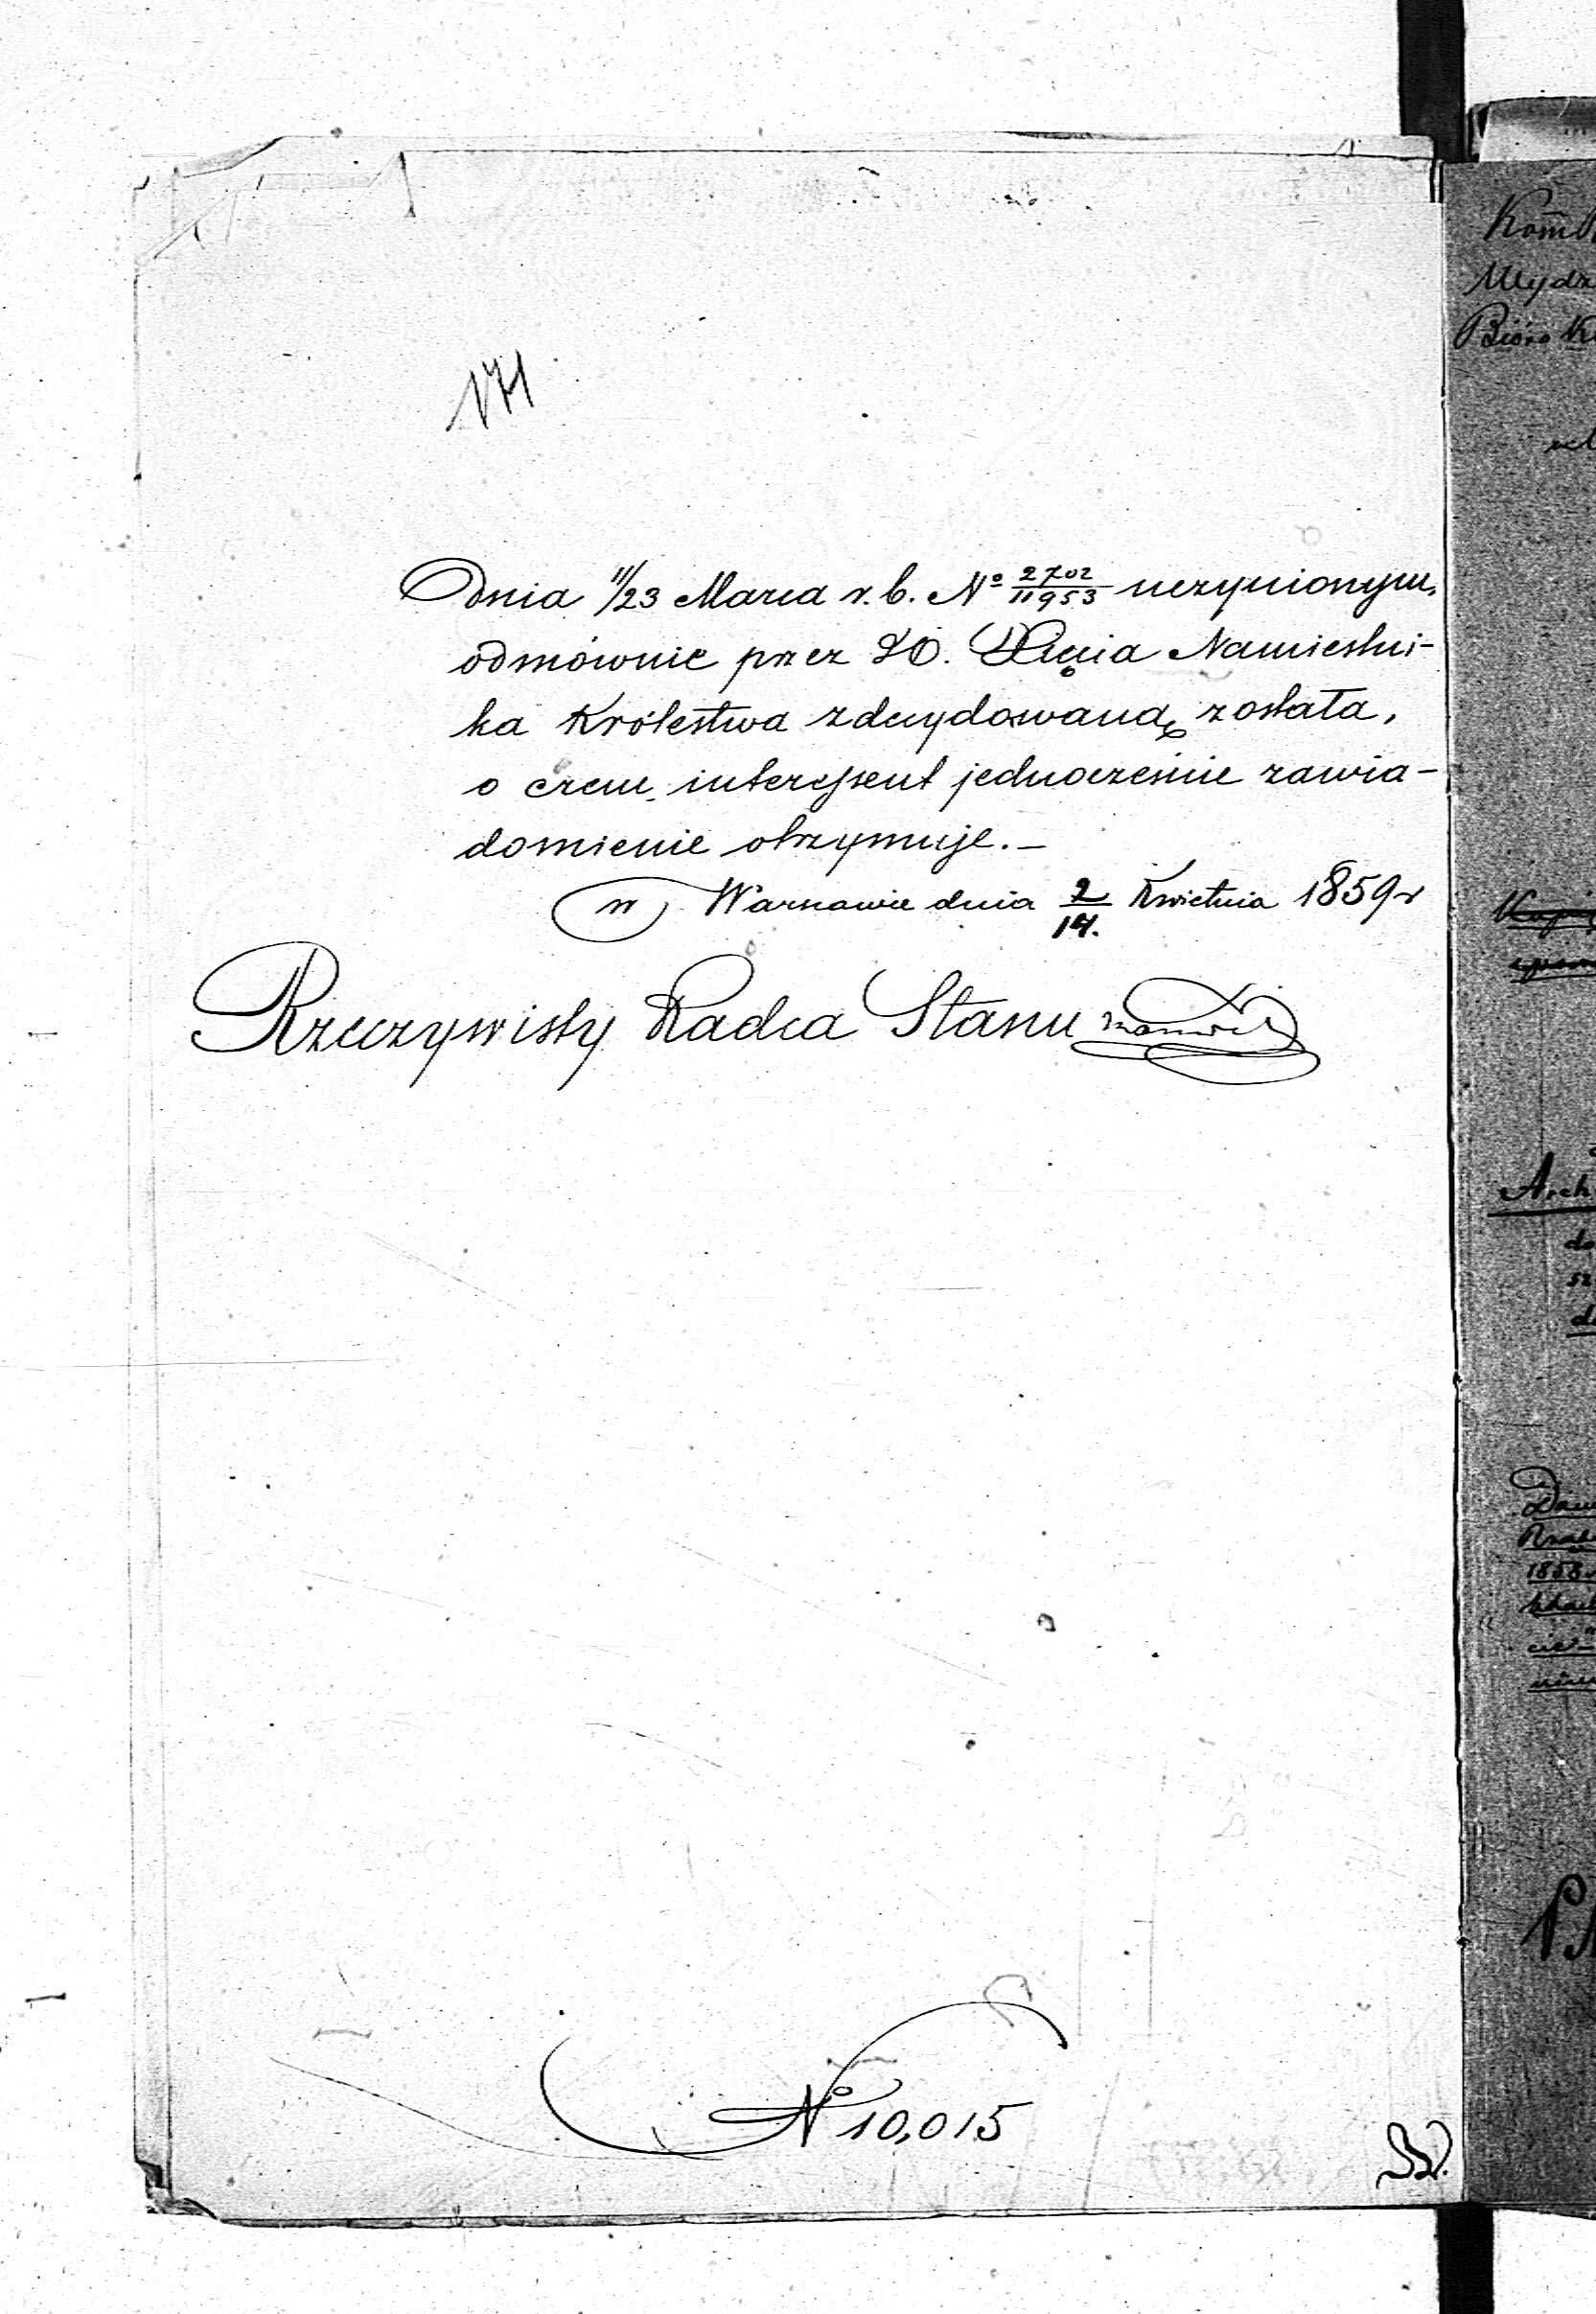 171
Dnia 11/23 Marca r. b. No 2702/11953 uczynionym,
odmównie przez JO. Xięcia Namiestni-
ka Królestwa zdecydowaną została,
o czem interessent jednocześnie zawia-
domienie otrzymuje. –
w Warszawie dnia 2/14. Kwietnia 1859 r
Rzeczywisty Radca Stanu
No 10,015